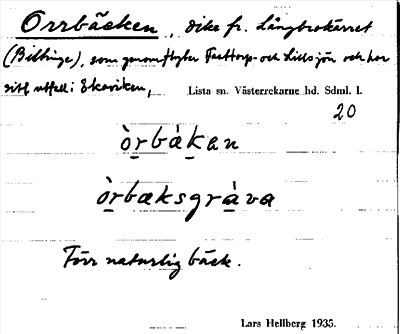 Orrbäcken, dike fr. Långbrokärret
(Billinge), som genomflyter Fasttorp- och Lillsjön och har
sitt utfall i Ekaviken,
Lista sn. Västerrekarne hd. Sdml. l.
20
òrbàkan
òrbæksgràva
Förr naturlig bäck.
Lars Hellberg 1935.